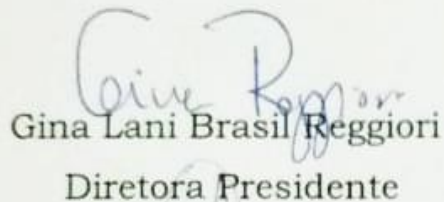 Gina Reggiori
Gina Lani Brasil Reggiori
Diretora Presidente